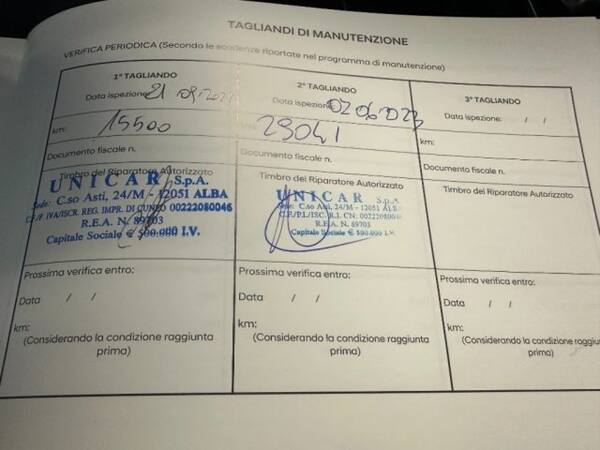 TAGLIANDI DI MANUTENZIONE
VERIFICA PERIODICA (Secondo le scadenze riportate nel programma di manutenzione)
1° TAGLIANDO
Data ispezione: 21
km: 15500
Documento fiscale n.
Timbro del Riparatore Autorizzato
UNICAR S.p.A.
Sede: C.so Asti, 24/M - 12051 ALBA
C.F/P IVA/ISCR. REG. IMPR. DI CUNEO 00222080046
R.E.A. N. 89703
Capitale Sociale € 500.000 I.V.
Prossima verifica entro:
Data / /
km:
(Considerando la condizione raggiunta
prima)
2° TAGLIANDO
Data ispezione: 02 06 023
29041
Documento fiscale n.
Timbro del Riparatore Autorizzato
UNICAR S.p.A.
Sede: C.so Asti, 24/M - 12051 ALB
C.F./P.I./ISC. R.I. CN: 002220800
R.E.A. N. 89703
Capitale Sociale € 500.000 I.V.
Prossima verifica entro:
Data / /
km:
(Considerando la condizione raggiunta
prima)
3° TAGLIANDO
Data ispezione: / /
km:
Documento fiscale n.
Timbro del Riparatore Autorizzato
Prossima verifica entro:
Data / /
km:
(Considerando la condizione raggiun
prima)